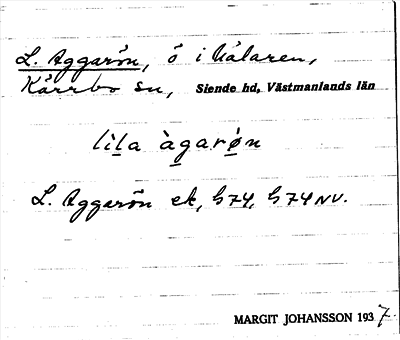 L. Aggarön, ö i Mälaren,
Kärrbo sn, Siende hd, Västmanlands län
lìl̲a àg̲arø̲n
L. Aggarön ek, G74, G74NV.
MARGIT JOHANSSON 1937.